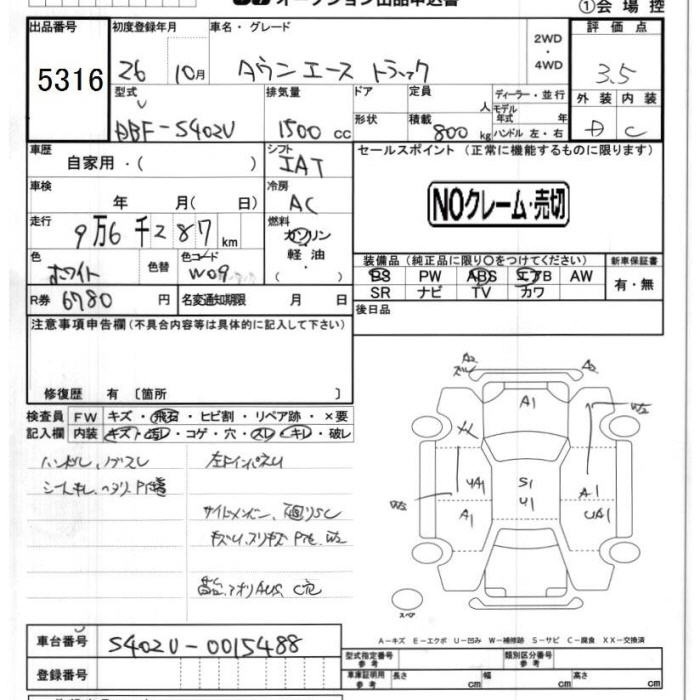 オークション出品申込書
①会場控
出品番号 初度登録年月 車名・グレード 2WD ・ 4WD 評価点
5316 26 10月 タウンエース トラック 3.5
型式 排気量 ドア 定員 人 ディーラー・並行 モデル年式 年 外装 内装
DBF-S402U 1500 cc 形状 積載 800 kg ハンドル 左・右 D C
車歴 自家用・( ) シフト IAT セールスポイント (正常に機能するものに限ります)
車検 年 月( 日) 冷房 AC NOクレーム・売切
走行 9万6千287km 燃料 ガソリン 軽油 ( )
色 ホワイト 色替 色コード W09 装備品(純正品に限り○をつけてください) 新車保証書
PS PW ABS エアB AW 有・無
SR ナビ TV カワ
R券 6780 円 名変通知期限 月 日 後日品
注意事項申告欄(不具合内容等は具体的に記入して下さい)
修復歴 有 〔箇所 〕
検査員 FW キズ・飛石・ヒビ割・リペア跡・×要
記入欄 内装 キズ・汚レ・コゲ・穴・スレ・キレ・破レ
A2 A2
A1 W2
ハンドルスレ
左インパネスレ
シートキレ
サイドメンバー
W2 UA1 S1 A1
A1 U1 UA1
スペア
A-キズ E-エクボ U-凹み W-補修跡 S-サビ C-腐食 XX-交換済
車台番号 S402U-0015488 型式指定番号 参考 類別区分番号 参考
登録番号 車庫証明用 参考 長さ cm 幅 cm 高さ cm